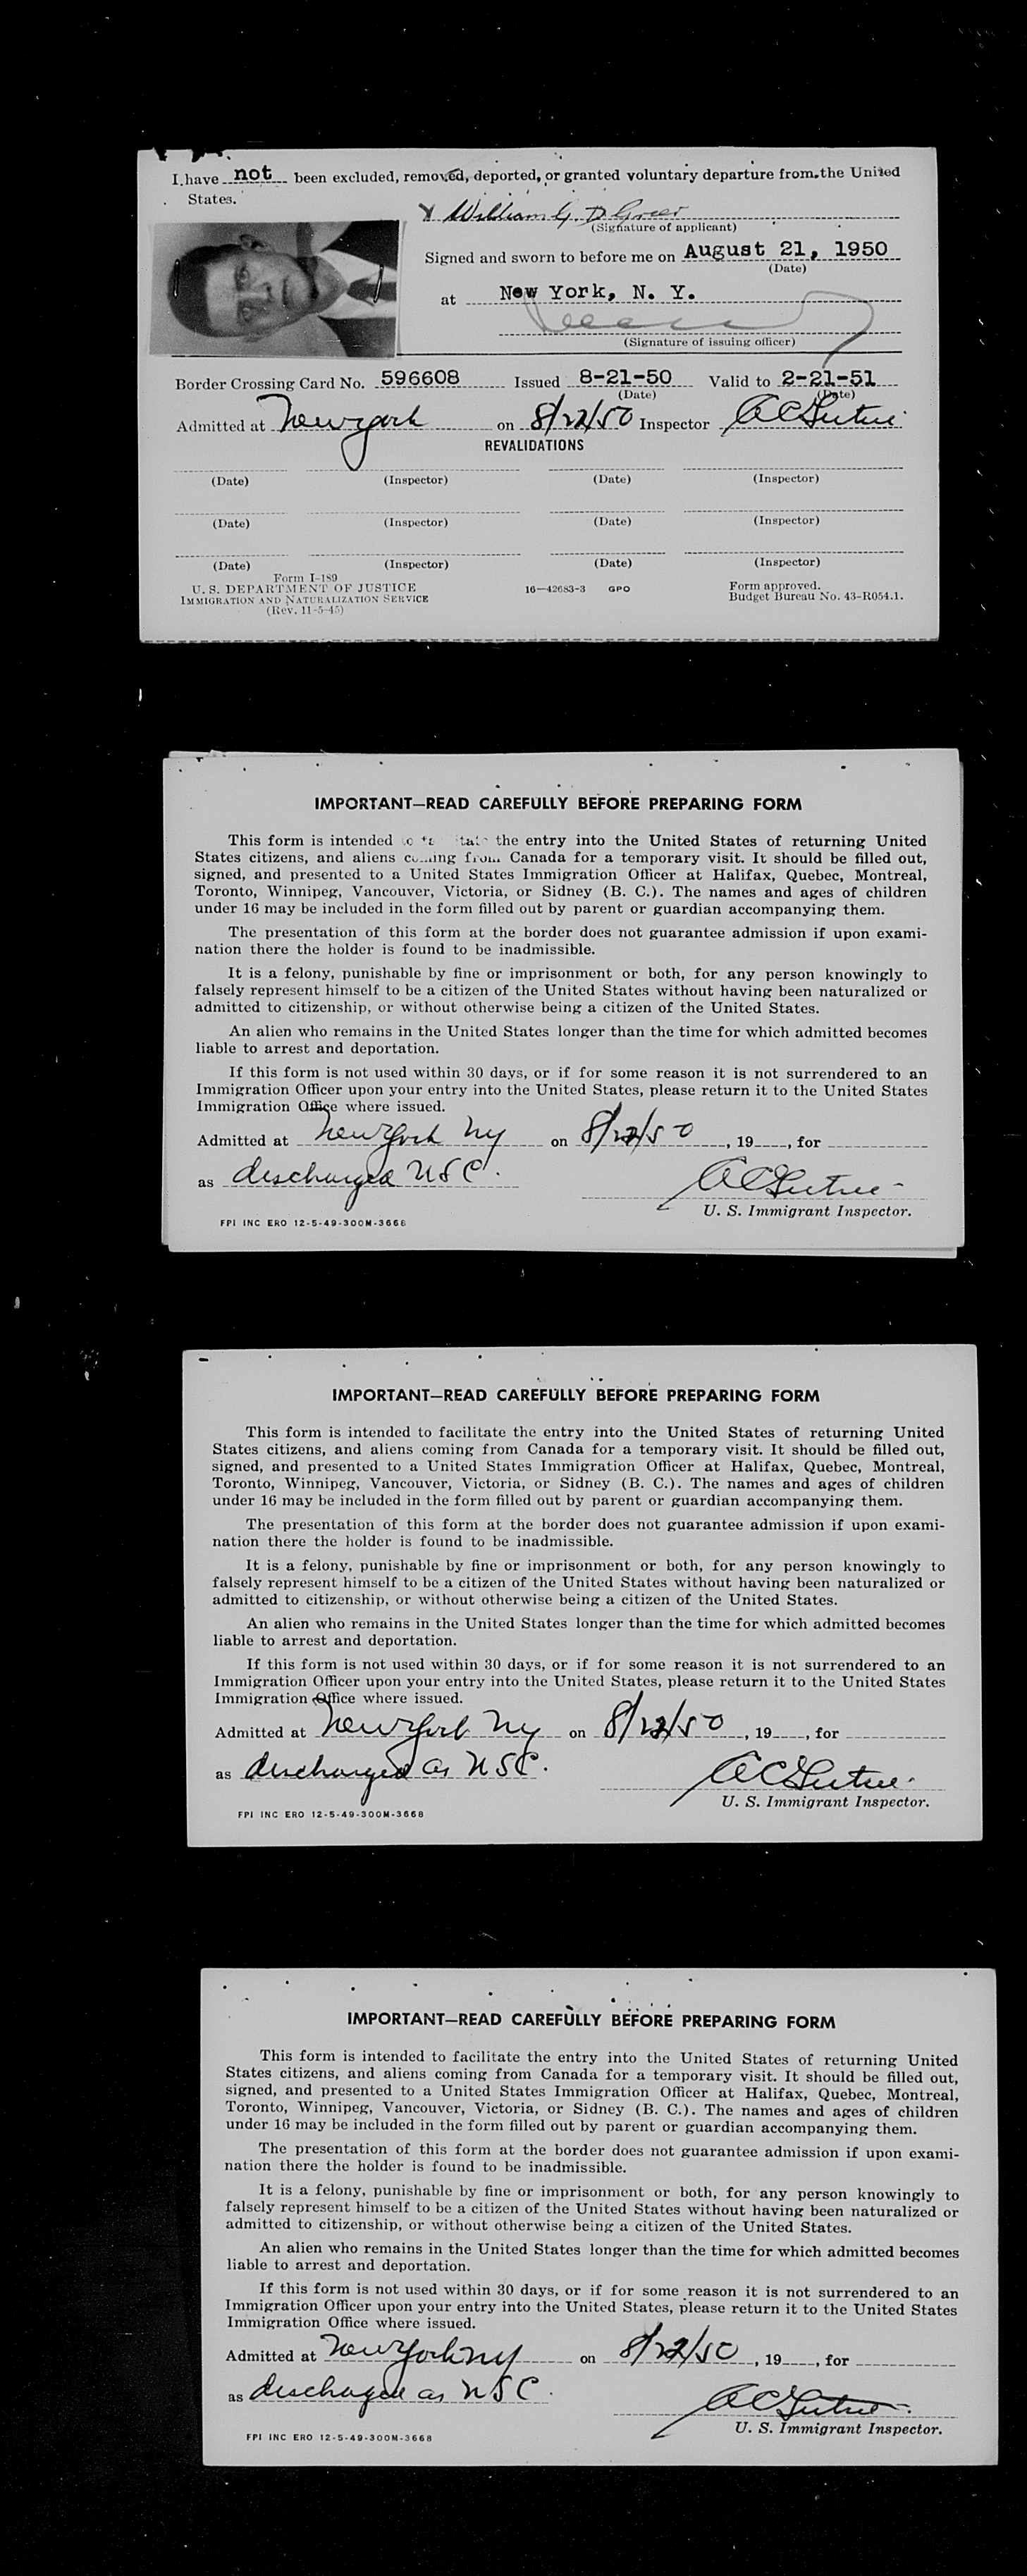 I have not been excluded, removed, deported, or granted voluntary departure from the United
States.
X William G. D. Greer
(Signature of applicant)
Signed and sworn to before me on August 21, 1950
(Date)
at New York, N. Y.
(Signature of issuing officer)
Border Crossing Card No. 596608 Issued 8-21-50 Valid to 2-21-51
(Date) (Date)
Admitted at New york on 8/22/50 Inspector
REVALIDATIONS
(Date) (Inspector) (Date) (Inspector)
(Date) (Inspector) (Date) (Inspector)
(Date) (Inspector) (Date) (Inspector)
Form I-189
U. S. DEPARTMENT OF JUSTICE 16—42683-3 GPO Form approved.
IMMIGRATION AND NATURALIZATION SERVICE Budget Bureau No. 43-R054.1.
(Rev. 11-5-45)
IMPORTANT—READ CAREFULLY BEFORE PREPARING FORM
This form is intended the entry into the United States of returning United
States citizens, and aliens coming from Canada for a temporary visit. It should be filled out,
signed, and presented to a United States Immigration Officer at Halifax, Quebec, Montreal,
Toronto, Winnipeg, Vancouver, Victoria, or Sidney (B. C.). The names and ages of children
under 16 may be included in the form filled out by parent or guardian accompanying them.
The presentation of this form at the border does not guarantee admission if upon exami-
nation there the holder is found to be inadmissible.
It is a felony, punishable by fine or imprisonment or both, for any person knowingly to
falsely represent himself to be a citizen of the United States without having been naturalized or
admitted to citizenship, or without otherwise being a citizen of the United States.
An alien who remains in the United States longer than the time for which admitted becomes
liable to arrest and deportation.
If this form is not used within 30 days, or if for some reason it is not surrendered to an
Immigration Officer upon your entry into the United States, please return it to the United States
Immigration Office where issued.
Admitted at New York NY on 8/22/50, 19, for
as discharged USC.
U. S. Immigrant Inspector.
FPI INC ERO 12-5-49-300M-3668
IMPORTANT—READ CAREFULLY BEFORE PREPARING FORM
This form is intended to facilitate the entry into the United States of returning United
States citizens, and aliens coming from Canada for a temporary visit. It should be filled out,
signed, and presented to a United States Immigration Officer at Halifax, Quebec, Montreal,
Toronto, Winnipeg, Vancouver, Victoria, or Sidney (B. C.). The names and ages of children
under 16 may be included in the form filled out by parent or guardian accompanying them.
The presentation of this form at the border does not guarantee admission if upon exami-
nation there the holder is found to be inadmissible.
It is a felony, punishable by fine or imprisonment or both, for any person knowingly to
falsely represent himself to be a citizen of the United States without having been naturalized or
admitted to citizenship, or without otherwise being a citizen of the United States.
An alien who remains in the United States longer than the time for which admitted becomes
liable to arrest and deportation.
If this form is not used within 30 days, or if for some reason it is not surrendered to an
Immigration Officer upon your entry into the United States, please return it to the United States
Immigration Office where issued.
Admitted at New York NY on 8/22/50, 19, for
as discharged as USC.
U. S. Immigrant Inspector.
FPI INC ERO 12-5-49-300M-3668
IMPORTANT—READ CAREFULLY BEFORE PREPARING FORM
This form is intended to facilitate the entry into the United States of returning United
States citizens, and aliens coming from Canada for a temporary visit. It should be filled out,
signed, and presented to a United States Immigration Officer at Halifax, Quebec, Montreal,
Toronto, Winnipeg, Vancouver, Victoria, or Sidney (B. C.). The names and ages of children
under 16 may be included in the form filled out by parent or guardian accompanying them.
The presentation of this form at the border does not guarantee admission if upon exami-
nation there the holder is found to be inadmissible.
It is a felony, punishable by fine or imprisonment or both, for any person knowingly to
falsely represent himself to be a citizen of the United States without having been naturalized or
admitted to citizenship, or without otherwise being a citizen of the United States.
An alien who remains in the United States longer than the time for which admitted becomes
liable to arrest and deportation.
If this form is not used within 30 days, or if for some reason it is not surrendered to an
Immigration Officer upon your entry into the United States, please return it to the United States
Immigration Office where issued.
Admitted at New York NY on 8/22/50, 19, for
as discharged as USC.
U. S. Immigrant Inspector.
FPI INC ERO 12-5-49-300M-3668